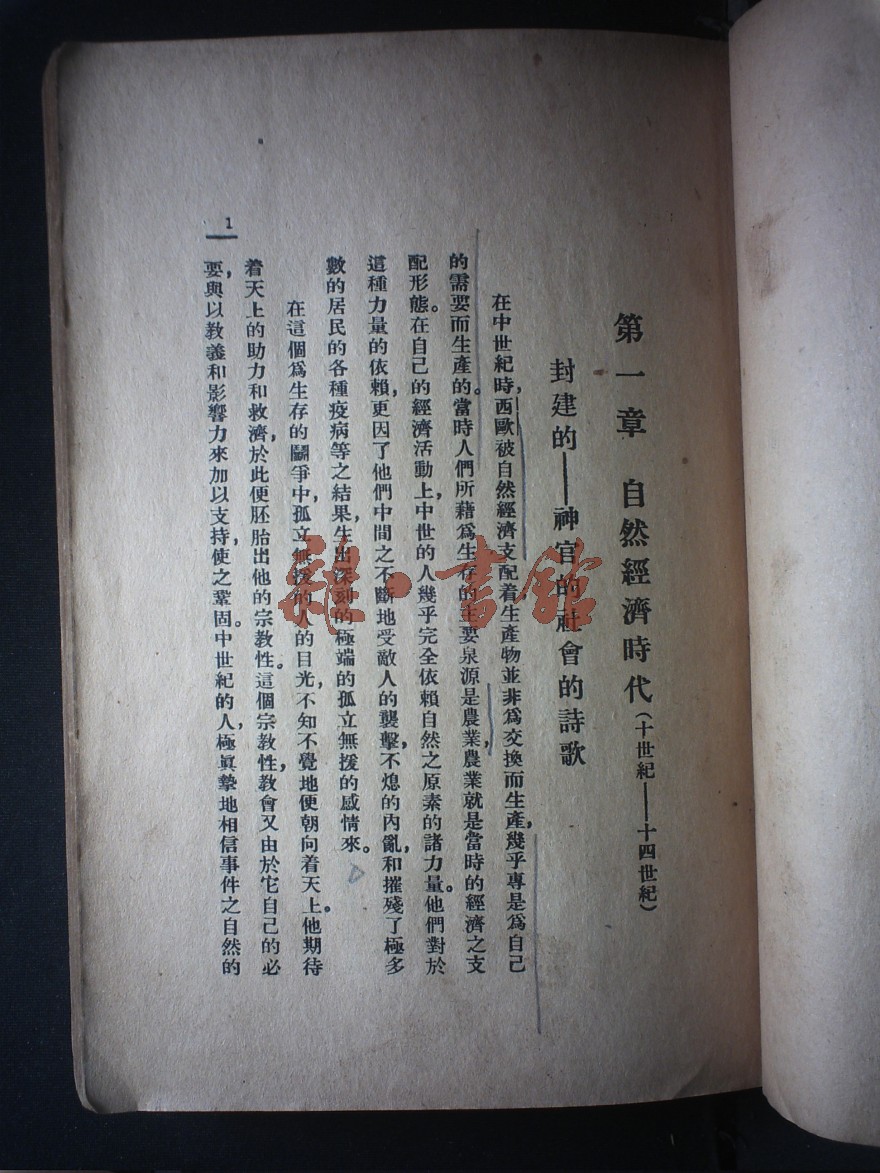 第一章 自然經濟時代(十世紀——十四世紀)
封建的——神官的社會的詩歌
在中世紀時,西歐被自然經濟支配着生產物並非爲交換而生產,幾乎專是爲自己
的需要而生產的。當時人們所藉爲生存的主要泉源是農業,農業就是當時的經濟之支
配形態。在自己的經濟活動上,中世的人幾乎完全依賴自然之原素的諸力量。他們對於
這種力量的依賴,更因了他們中間之不斷地受敵人的襲擊,不熄的內亂,和摧殘了極多
數的居民的各種疫病等之結果,生出深刻的極端的孤立無援的感情來。
在這個爲生存的鬭爭中,孤立無援的人的目光,不知不覺地便朝向着天上。他期待
着天上的助力和救濟,於此便胚胎出他的宗教性。這個宗教性,教會又由於它自己的必
要,與以教義和影響力來加以支持,使之鞏固。中世紀的人,極眞摯地相信事件之自然的
1
書館